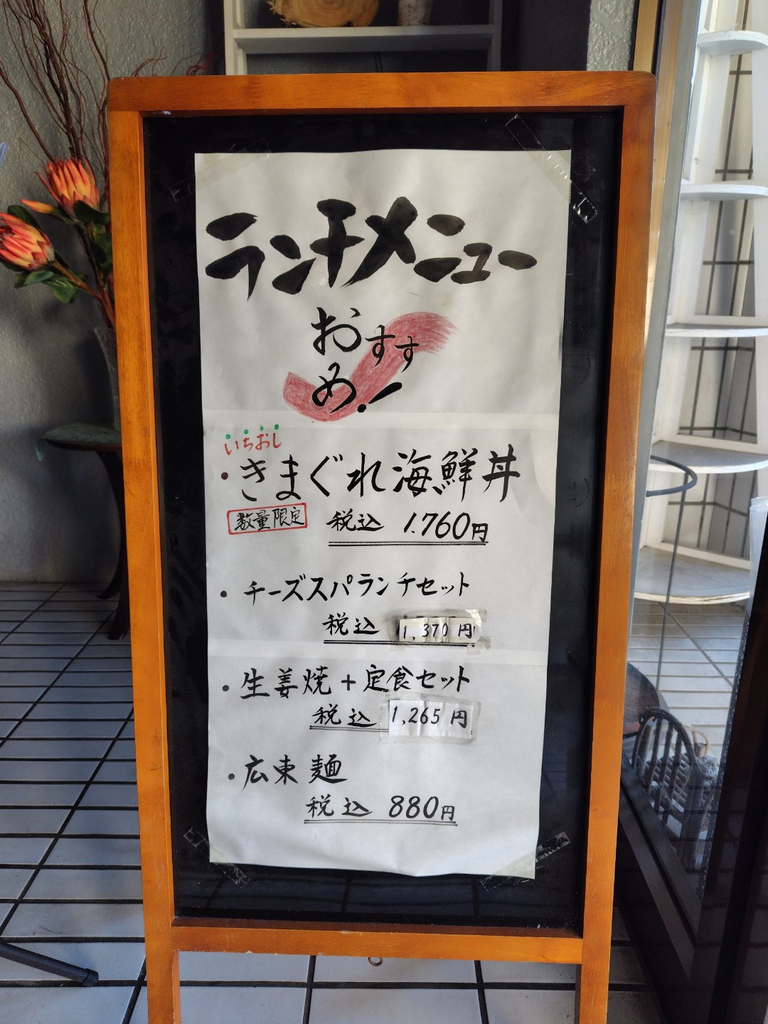 ランチメニュー
おすすめ!
いちおし
・きまぐれ海鮮丼
数量限定 税込 1.760円
・チーズスパランチセット
税込 1,370円
・生姜焼+定食セット
税込 1,265円
・広東麺
税込 880円